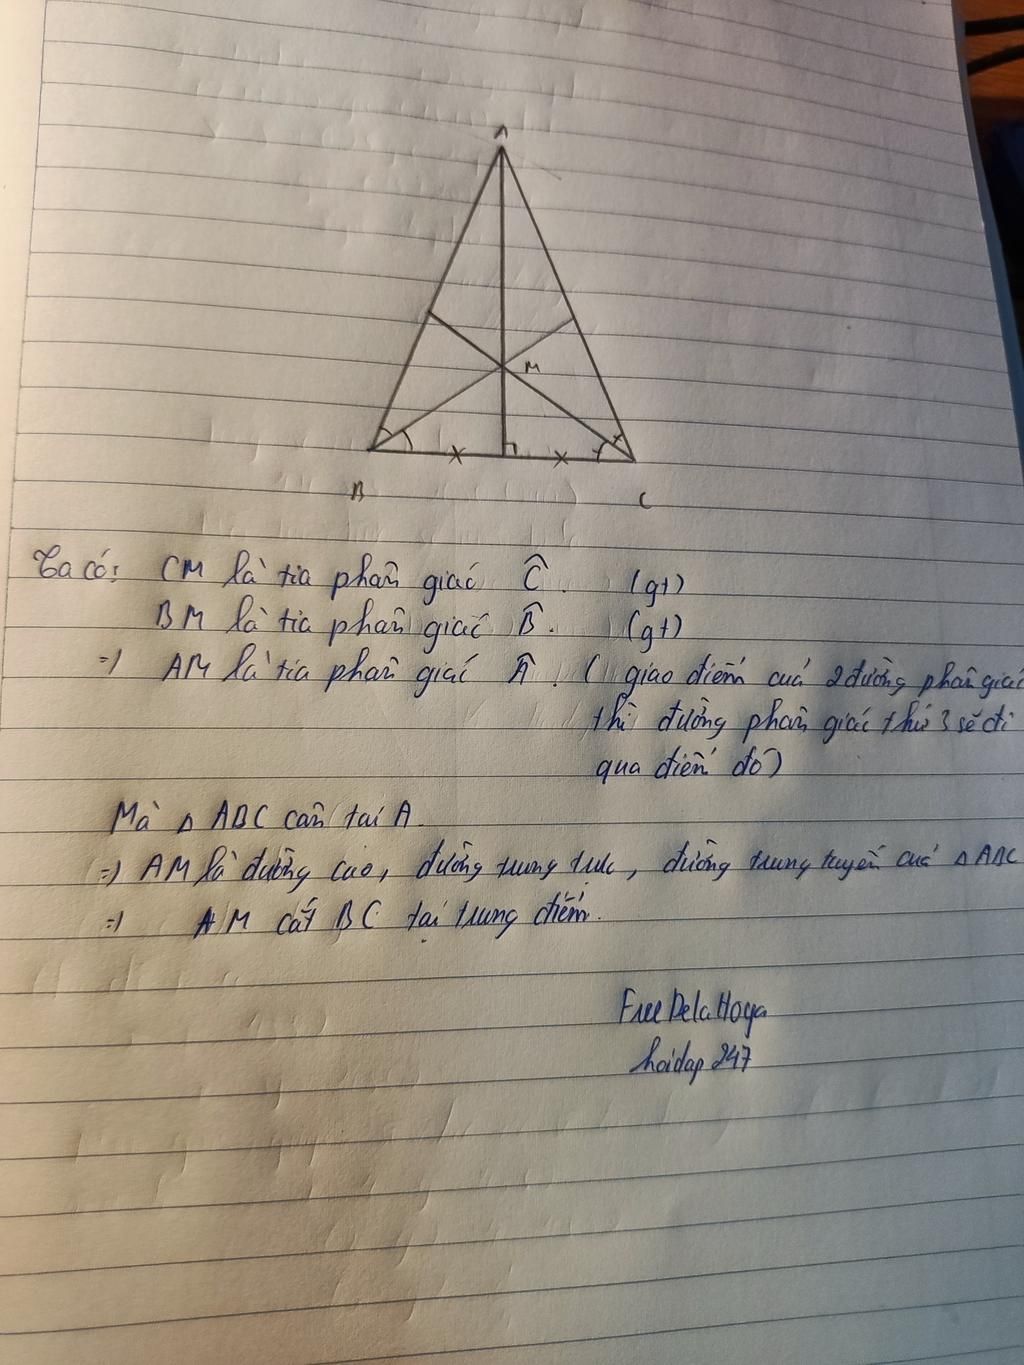 A
M
B
C
Ta có: CM là tia phân giác Ĉ. (gt)
BM là tia phân giác B̂. (gt)
=) AM là tia phân giác Â. ( giao điểm của 2 đường phân giác
thì đường phân giác thứ 3 sẽ đi
qua điểm đó)
Mà Δ ABC cân tại A.
=) AM là đường cao, đường trung trực, đường trung tuyến của Δ ABC
=) AM cắt BC tại trung điểm.
FreeDelaHoya
hoidap247